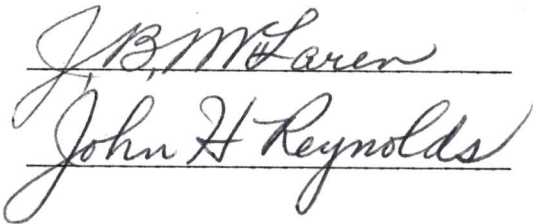 J. B. McLaren
John H Reynolds